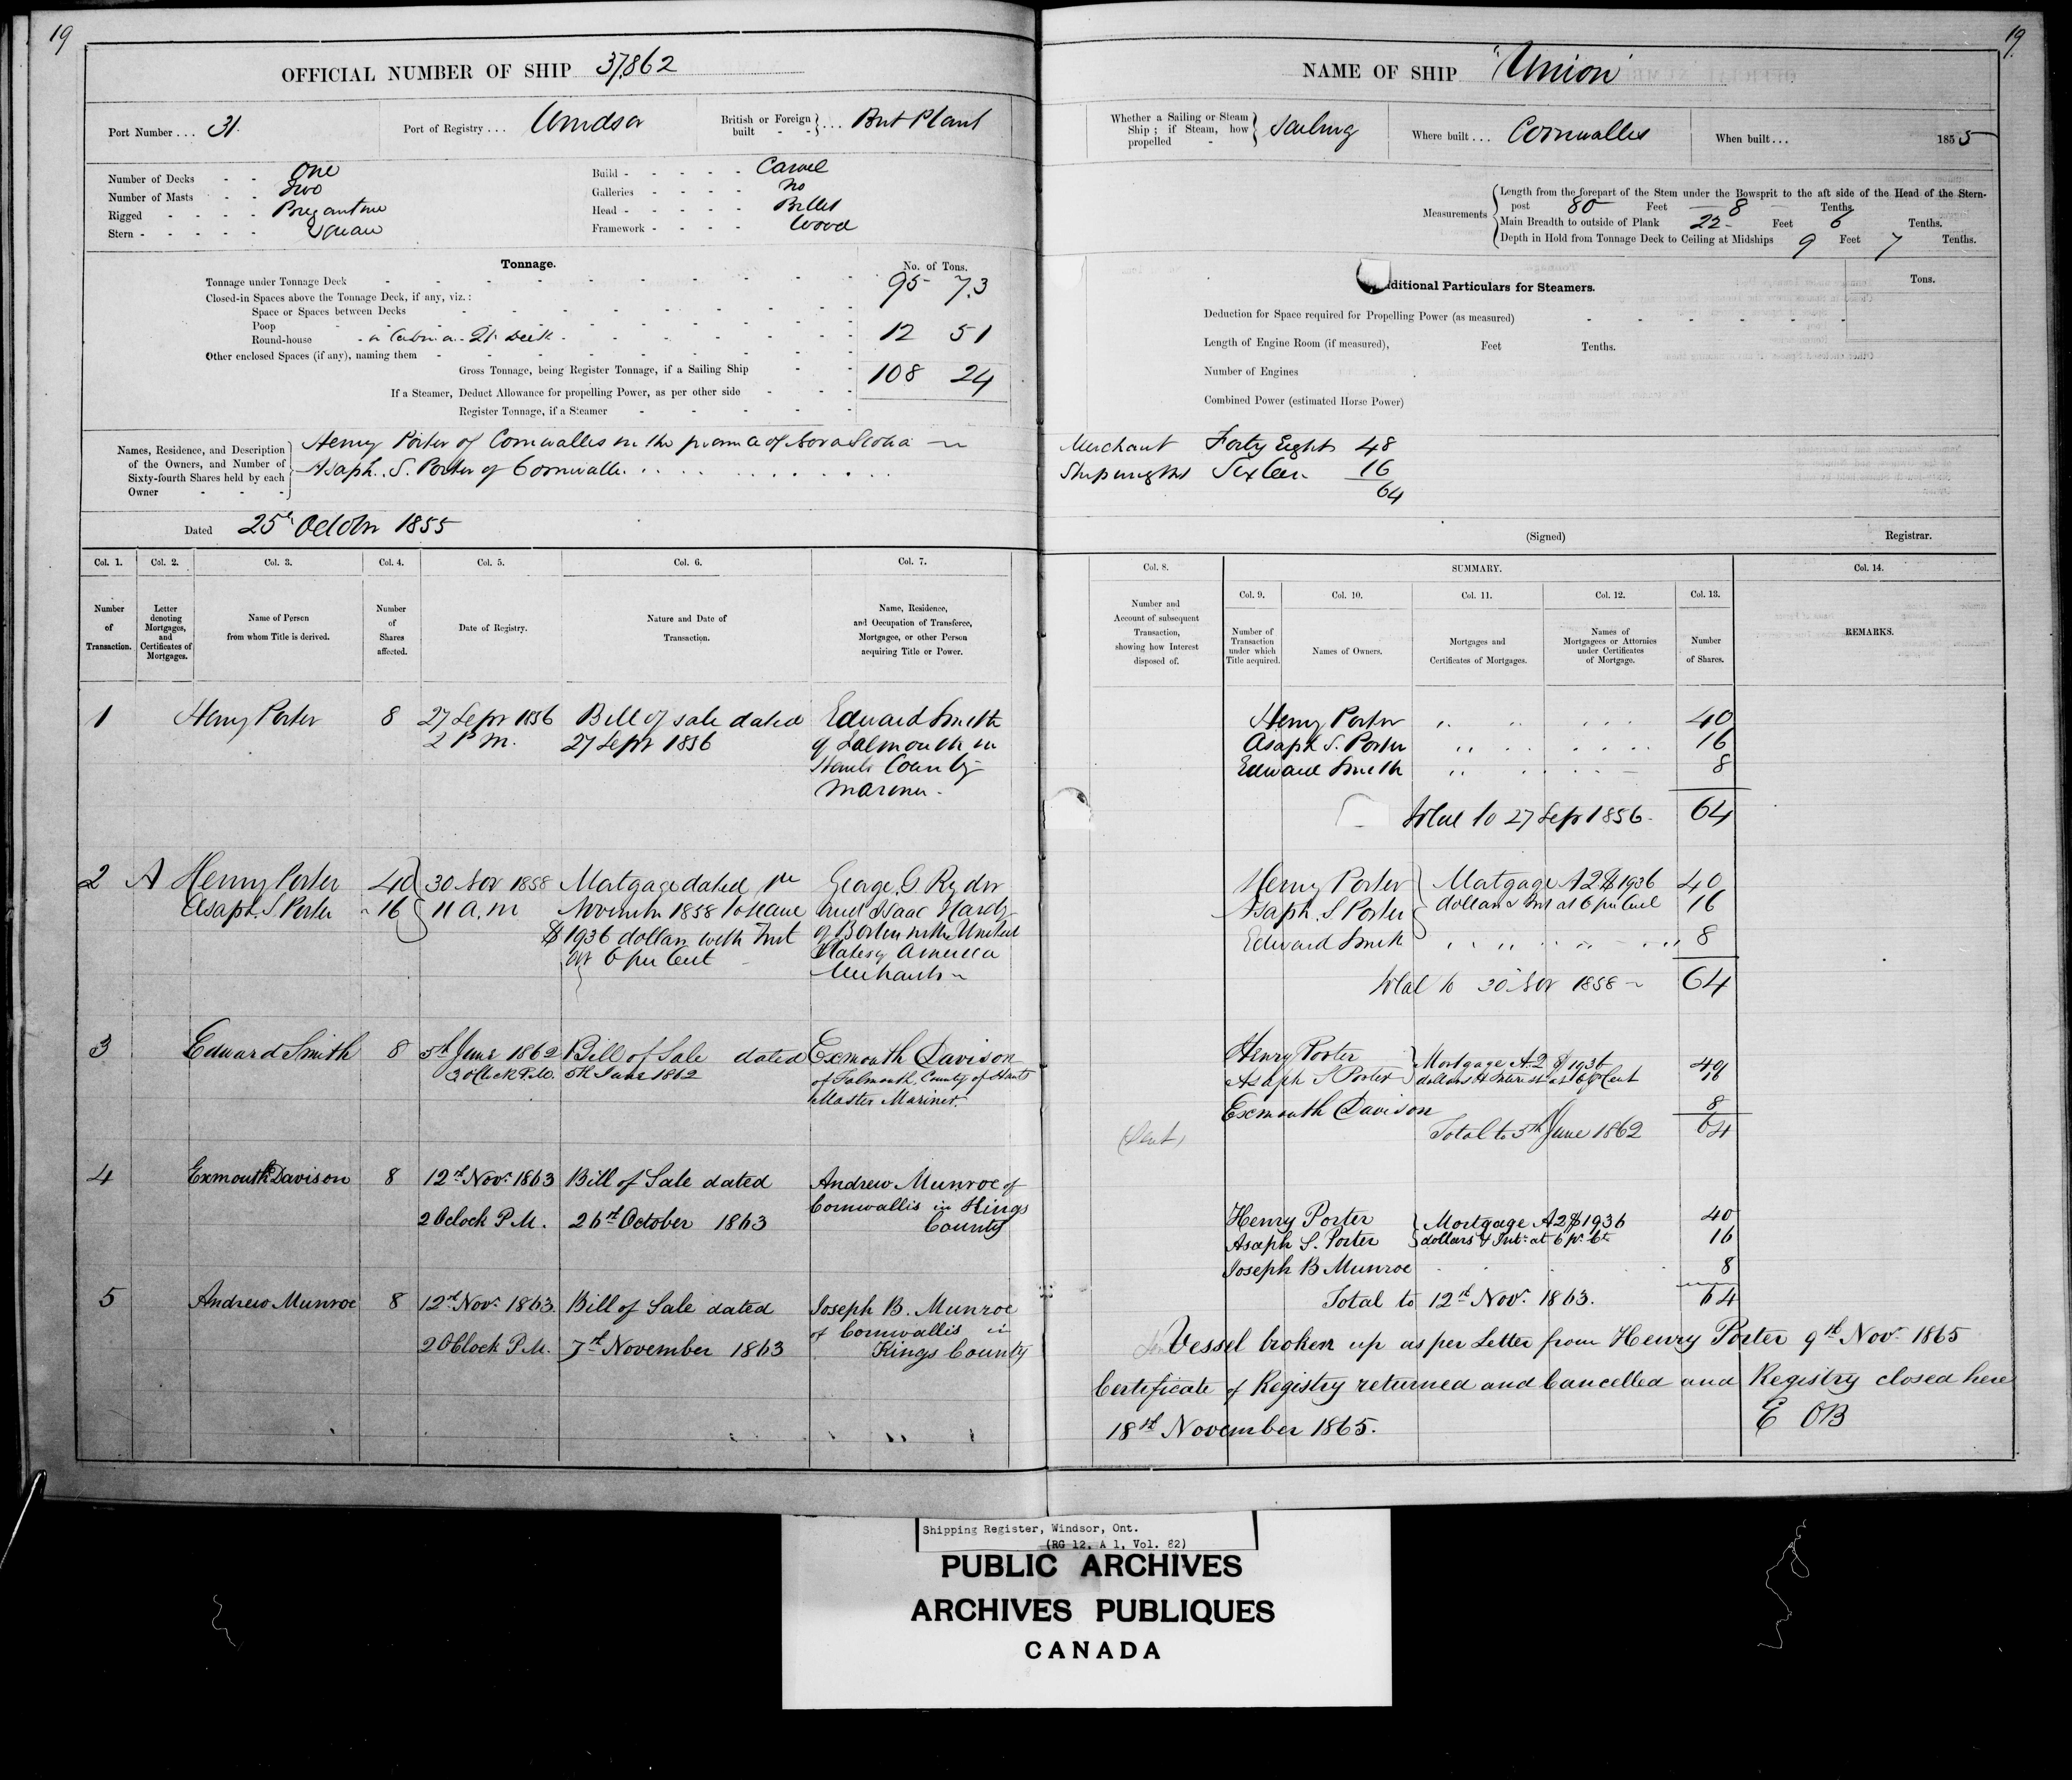 19
OFFICIAL NUMBER OF SHIP 37,862
Port Number . . . 31.
Port of Registry . . . Windsor
British or Foreign built - - } . . . Brit Plant
Number of Decks - - One
Number of Masts - - Two
Rigged - - - - Brigantine
Stern - - - - - Square
Build - - - - - Carvel
Galleries - - - - no
Head - - - - - Billet
Framework - - - - Wood
Tonnage.
No. of Tons.
Tonnage under Tonnage Deck 95 73
Closed-in Spaces above the Tonnage Deck, if any, viz.:
Space or Spaces between Decks
Poop
Round-house - or Cabin on Qr. Deck 12 51
Other enclosed Spaces (if any), naming them
Gross Tonnage, being Register Tonnage, if a Sailing Ship 108 24
If a Steamer, Deduct Allowance for propelling Power, as per other side
Register Tonnage, if a Steamer
Names, Residence, and Description of the Owners, and Number of Sixty-fourth Shares held by each Owner - - -
Henry Porter of Cornwallis in the province of Nova Scotia
Asaph. S. Porter of Cornwallis
Dated 25th October 1855
Col. 1. Col. 2. Col. 3. Col. 4. Col. 5. Col. 6. Col. 7.
Number of Transaction.
Letter denoting Mortgages, and Certificates of Mortgages.
Name of Person from whom Title is derived.
Number of Shares affected.
Date of Registry.
Nature and Date of Transaction.
Name, Residence, and Occupation of Transferee, Mortgagee, or other Person acquiring Title or Power.
1 Henry Porter 8 27 Sepr 1856 Bill of sale dated Edward Smith
2 P.M. 27 Sepr 1856 of Falmouth in
Hants County
Mariner.
2 A Henry Porter 40 30 Nov 1858 Mortgage dated 1st George G Ryder
Asaph. S. Porter 16 11 A.M November 1858 and Isaac Hardy
$1936 dollars with Int of Boston in the United
at 6 per Cent States of America
Merchants
3 Edward Smith 8 5th June 1862 Bill of Sale dated Exmouth Davison
3 oClock P.M. 5th June 1862 of Falmouth, County of Hants
Master Mariner.
4 Exmouth Davison 8 12th Novr 1863 Bill of Sale dated Andrew Munroe of
2 Oclock P.M. 26th October 1863 Cornwallis in Kings
County
5 Andrew Munroe 8 12th Novr 1863. Bill of Sale dated Joseph B. Munroe
2 OClock P.M. 7th November 1863 of Cornwallis in
Kings County
19.
NAME OF SHIP "Union"
Whether a Sailing or Steam Ship; if Steam, how propelled - } Sailing
Where built . . . Cornwallis
When built . . . 1855
Measurements
Length from the forepart of the Stem under the Bowsprit to the aft side of the Head of the Stern-
post 80 Feet 8 Tenths.
Main Breadth to outside of Plank 22 Feet 6 Tenths.
Depth in Hold from Tonnage Deck to Ceiling at Midships 9 Feet 7 Tenths.
ditional Particulars for Steamers.
Tons.
Deduction for Space required for Propelling Power (as measured)
Length of Engine Room (if measured), Feet Tenths.
Number of Engines
Combined Power (estimated Horse Power)
Merchant Forty Eight 48
Shipwright Sixteen 16
64
(Signed) Registrar.
Col. 8. SUMMARY. Col. 14.
Col. 9. Col. 10. Col. 11. Col. 12. Col. 13.
Number and Account of subsequent Transaction, showing how Interest disposed of.
Number of Transaction under which Title acquired.
Names of Owners.
Mortgages and Certificates of Mortgages.
Names of Mortgagees or Attornies under Certificates of Mortgage.
Number of Shares.
REMARKS.
Henry Porter 40
Asaph S. Porter 16
Edward Smith 8
Total to 27 Sepr 1856. 64
Henry Porter } Mortgage A 2 $1936 40
Asaph. S. Porter dollars & Int at 6 per Cent 16
Edward Smith 8
Total to 30 Nov 1858 64
Henry Porter } Mortgage A. 2 $1936 40
Asaph S Porter dollars & Interest at 6 p Cent 16
Exmouth Davison 8
Total to 5th June 1862 64
(Sent)
Henry Porter } Mortgage A 2 $1936 40
Asaph S. Porter dollars & Int. at 6 pr Ct 16
Joseph B Munroe 8
Total to 12th Novr. 1863. 64
Vessel broken up as per Letter from Henry Porter 9th Novr 1865
Certificate of Registry returned and Cancelled and Registry closed here
18th November 1865. E OB
Shipping Register, Windsor, Ont.
(RG 12, A 1, Vol. 82)
PUBLIC ARCHIVES
ARCHIVES PUBLIQUES
CANADA